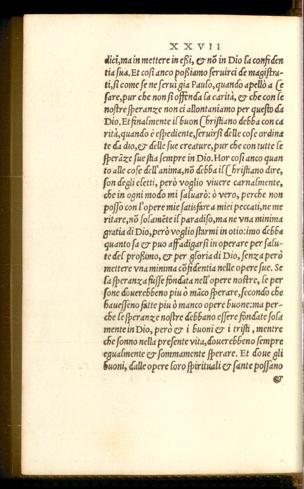 XXVII
dici, ma in mettere in eßi, & nō in Dio la confiden
tia sua. Et cosi anco poßiamo seruirci de magistra-
ti, si come se ne seruì gia Paulo, quando apellò a Ce
sare, pur che non si offenda la carità, & che con le
nostre speranze non ci allontaniamo per questo da
Dio. Et finalmente il buon Christiano debba con ca
rità, quando è espediente, seruirsi delle cose ordina
te da dio, & delle sue creature, pur che con tutte le
sperāze sue stia sempre in Dio. Hor cosi anco quan
to alle cose dell'anima, nō debba il Christiano dire,
son degli eletti, però voglio viuere carnalmente,
che in ogni modo mi saluarò: ò vero, perche non
posso con l'opere mie satisfare a miei peccati, ne me
ritare, nō solamēte il paradiso, ma ne vna minima
gratia di Dio, però voglio starmi in otio: imo debba
quanto sa & puo affadigarsi in operare per salu-
te del proßimo, & per gloria di Dio, senza però
mettere vna minima cōfidentia nelle opere sue. Se
la speranza fusse fondata nell'opere nostre, le per
sone douerebbeno piu ò māco sperare, secondo che
hauesseno fatte piu ò manco opere buone: ma per-
che le speranze nostre debbano essere fondate sola
mente in Dio, però & i buoni & i tristi, mentre
che sonno nella presente vita, douerebbeno sempre
egualmente & sommamente sperare. Et doue gli
buoni, dalle opere loro spirituali & sante possano
&